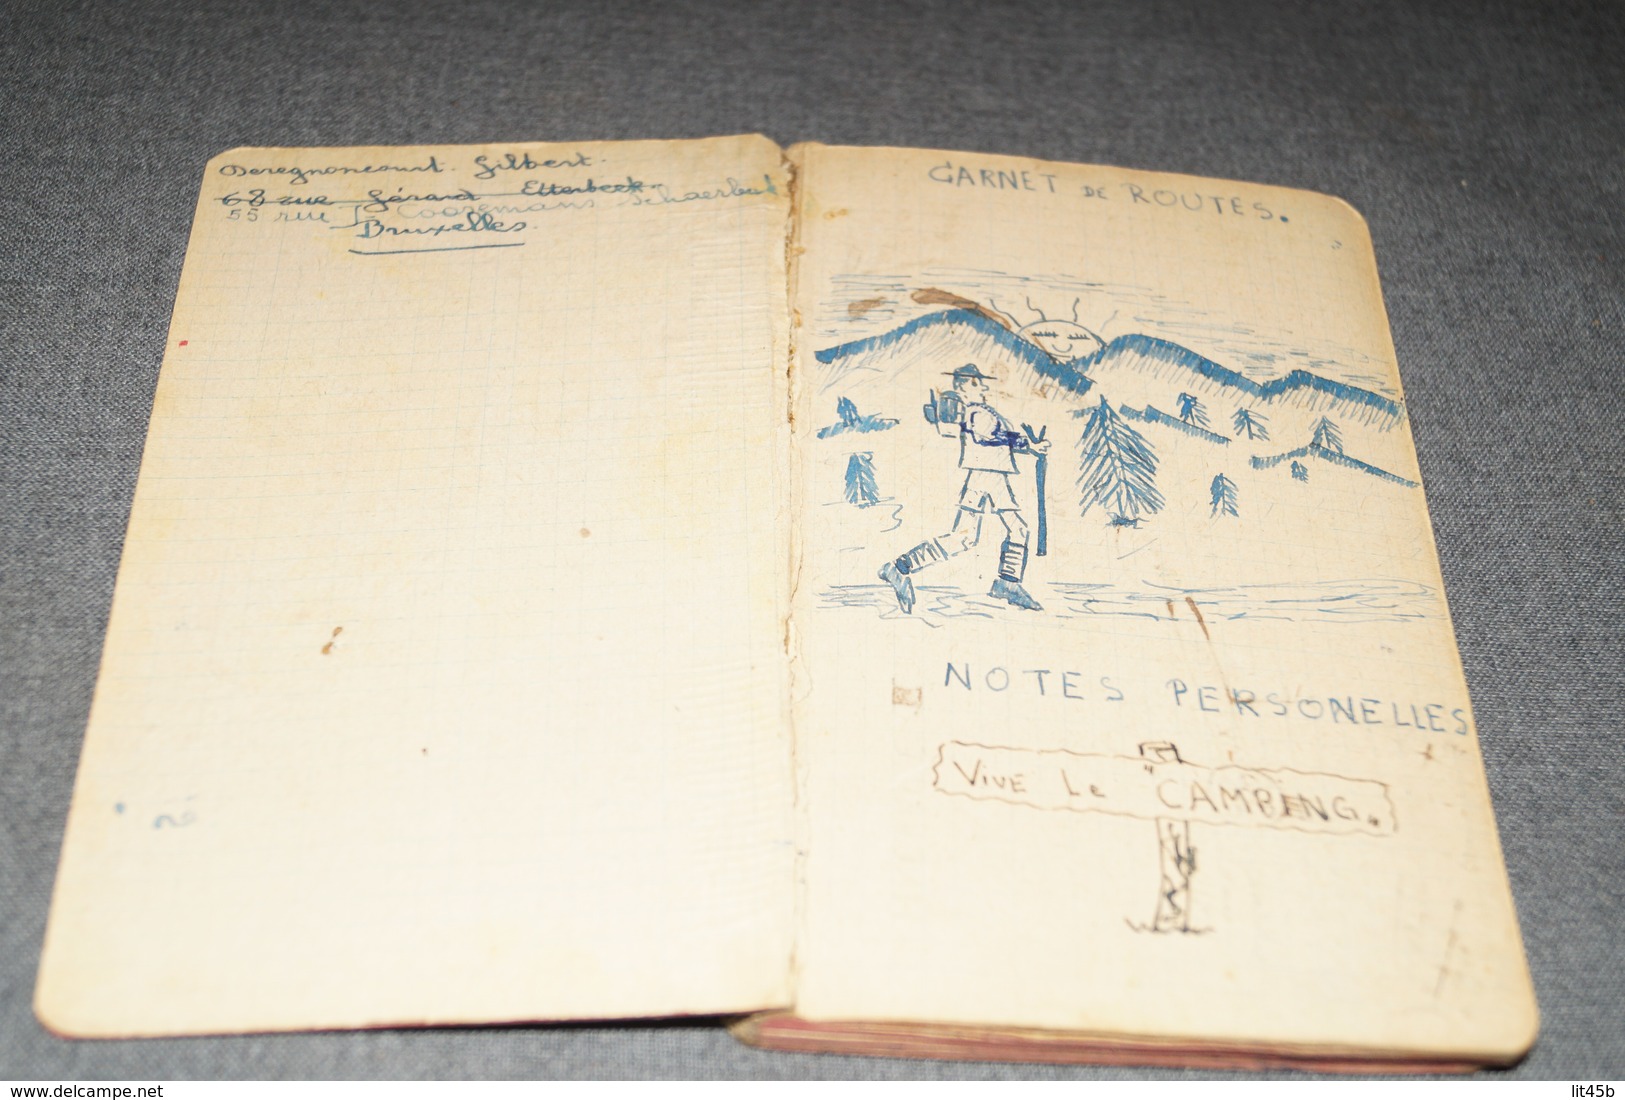 Deregnoncourt. Gilbert.
68 rue Gérard Etterbeek.
55 rue J. Cooremans Schaerbeek
Bruxelles.
CARNET DE ROUTES.
NOTES PERSONELLES
VIVE Le "CAMPENG.
www.delcampe.net
lit45b